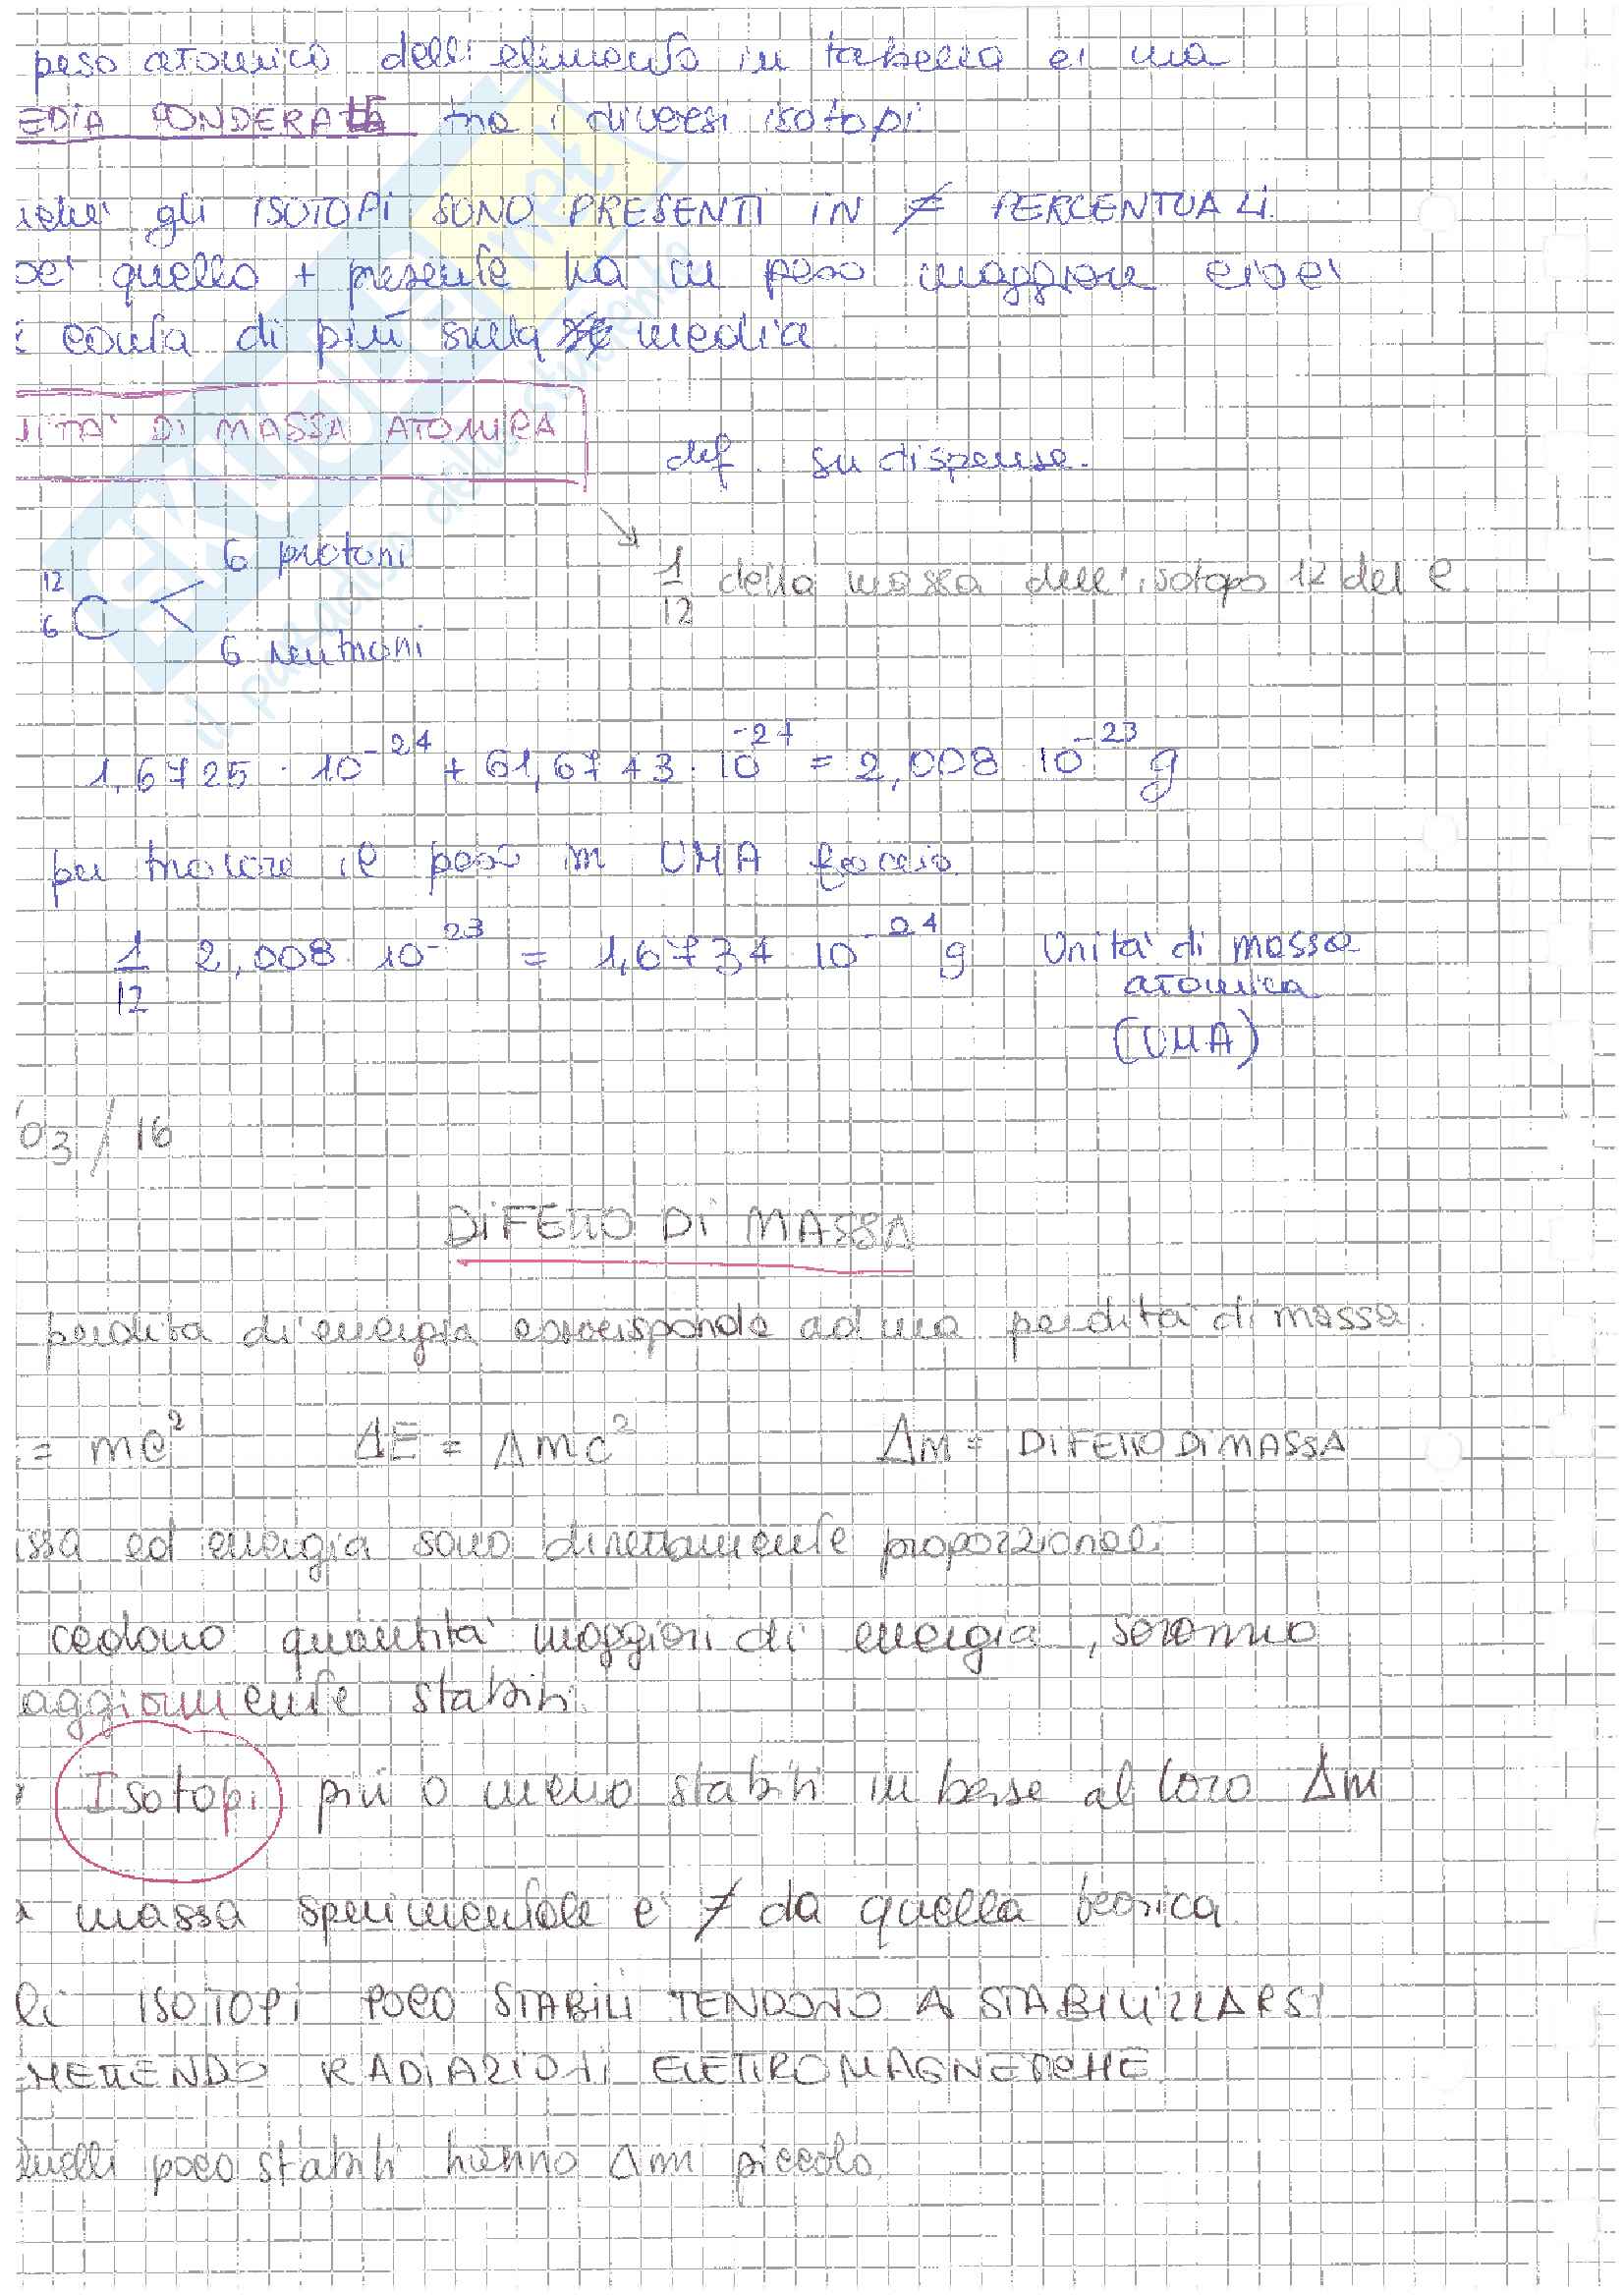 peso atomico dell'elemento in tabella è una
EDIA PONDERATA tra i diversi isotopi
iché gli ISOTOPI SONO PRESENTI IN ≠ PERCENTUALI.
oè quello + presente ha un peso maggiore cioè
conta di più sulla media
ITÀ DI MASSA ATOMICA
def. su dispense.
12 6 C < 6 protoni 6 neutroni
1/12 della massa dell'isotopo 12 del C.
1,6725 · 10^-24 + 61,6743 · 10^-24 = 2,008 10^-23 g
per trovare il peso in UMA faccio
1/12 2,008 · 10^-23 = 1,6734 10^-24 g Unità di massa
atomica
(UMA)
03/16
DIFETTO DI MASSA
perdita di energia corrisponde ad una perdita di massa.
= mc² ΔE = Δmc² Δm = DIFETTO DI MASSA
ssa ed energia sono direttamente proporzionali
cedono quantità maggiori di energia, saranno
aggiormente stabili.
Isotopi più o meno stabili in base al loro Δm
a massa sperimentale è ≠ da quella teorica
li ISOTOPI POCO STABILI TENDONO A STABILIZZARSI
EMETTENDO RADIAZIONI ELETTROMAGNETICHE.
Quelli poco stabili hanno Δm piccolo.
il paradiso dello studente